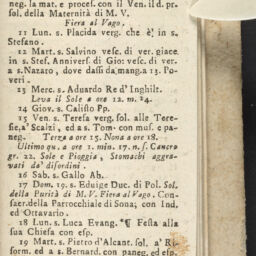 neg. la mat. e proces. con il Ven. il d. pr.
sol. della Maternità di M. V.
Fiera al Vago.
11 Lun. s. Placida verg. che è in s.
Stefano.
12 Mart. s. Salvino vesc. di ver. giace
in s. Stef. Anniver. di Gio: vesc. di ver.
a s. Nazaro, dove dassi da mang. a 13. po-
veri.
13 Merc. s. Aduardo Re d'Inghilt.
Leva il Sole a ore 12. m. 24.
14 Giov. s. Calisto Pp.
15 Ven. s. Teresa verg. sol. alle Tere-
sie, a' Scalzi, ed a s. Tom. con mus. e pa-
neg. Terza a ore 15. Nona a ore 18.
Ultimo qu. a ore 1. min. 17. n. s. Cancro
gr. 22. Sole e Pioggia, Stomachi aggra-
vati da' disordini.
16 Sab. s. Gallo Ab.
17 Dom. 19. s. Eduige Duc. di Pol. Sol.
della Purità di M. V. Fiera al Vago. Con-
sacr. della Parrocchiale di Sona; con Ind.
ed Ottavario.
18 Lun. s. Luca Evang. *¶ Festa alla
sua Chiesa con esp.
19 Mart. s. Pietro d'Alcant. sol. a' Ri-
form. ed a s. Bernard. con paneg. ed esp.